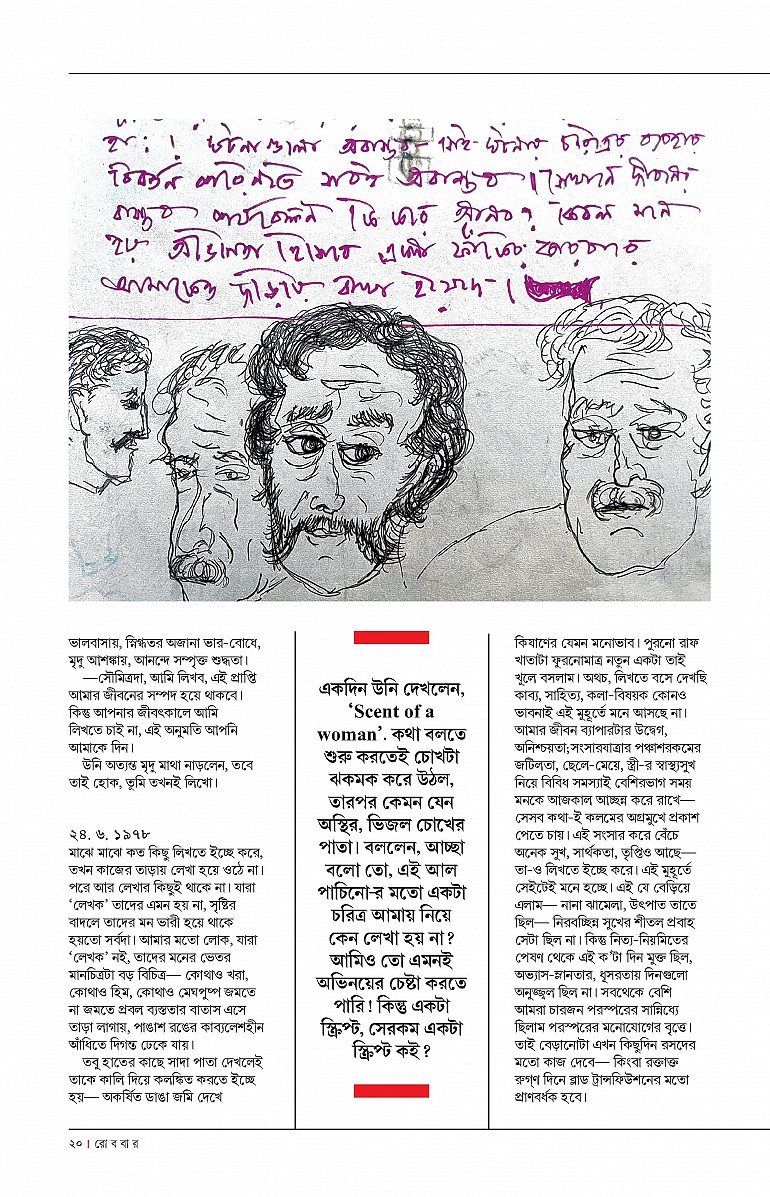 ভালবাসায়, স্নিগ্ধতর অজানা ভার-বোধে,
মৃদু আশঙ্কায়, আনন্দে সম্পৃক্ত শুদ্ধতা।
—সৌমিত্রদা, আমি লিখব, এই প্রাপ্তি
আমার জীবনের সম্পদ হয়ে থাকবে।
কিন্তু আপনার জীবৎকালে আমি
লিখতে চাই না, এই অনুমতি আপনি
আমাকে দিন।
উনি অত্যন্ত মৃদু মাথা নাড়লেন, তবে
তাই হোক, তুমি তখনই লিখো।
২৪. ৬. ১৯৭৮
মাঝে মাঝে কত কিছু লিখতে ইচ্ছে করে,
তখন কাজের তাড়ায় লেখা হয়ে ওঠে না।
পরে আর লেখার কিছুই থাকে না। যারা
‘লেখক’ তাদের এমন হয় না, সৃষ্টির
বাদলে তাদের মন ভারী হয়ে থাকে
হয়তো সর্বদা। আমার মতো লোক, যারা
‘লেখক’ নই, তাদের মনের ভেতর
মানচিত্রটা বড় বিচিত্র— কোথাও খরা,
কোথাও হিম, কোথাও মেঘপুষ্প জমতে
না জমতে প্রবল ব্যস্ততার বাতাস এসে
তাড়া লাগায়, পাঙাশ রঙের কাব্যলেশহীন
আঁধিতে দিগন্ত ঢেকে যায়।
তবু হাতের কাছে সাদা পাতা দেখলেই
তাকে কালি দিয়ে কলঙ্কিত করতে ইচ্ছে
হয়— অকর্ষিত ডাঙা জমি দেখে
একদিন উনি দেখলেন,
‘Scent of a
woman’. কথা বলতে
শুরু করতেই চোখটা
ঝকমক করে উঠল,
তারপর কেমন যেন
অস্থির, ভিজল চোখের
পাতা। বললেন, আচ্ছা
বলো তো, এই আল
পাচিনো-র মতো একটা
চরিত্র আমায় নিয়ে
কেন লেখা হয় না?
আমিও তো এমনই
অভিনয়ের চেষ্টা করতে
পারি! কিন্তু একটা
স্ক্রিপ্ট, সেরকম একটা
স্ক্রিপ্ট কই?
কিষাণের যেমন মনোভাব। পুরনো রাফ
খাতাটা ফুরনোমাত্র নতুন একটা তাই
খুলে বসলাম। অথচ, লিখতে বসে দেখছি
কাব্য, সাহিত্য, কলা-বিষয়ক কোনও
ভাবনাই এই মুহূর্তে মনে আসছে না।
আমার জীবন ব্যাপারটার উদ্বেগ,
অনিশ্চয়তা;সংসারযাত্রার পঞ্চাশরকমের
জটিলতা, ছেলে-মেয়ে, স্ত্রী-র স্বাস্থ্যসুখ
নিয়ে বিবিধ সমস্যাই বেশিরভাগ সময়
মনকে আজকাল আচ্ছন্ন করে রাখে—
সেসব কথা-ই কলমের অগ্রমুখে প্রকাশ
পেতে চায়। এই সংসার করে বেঁচে
অনেক সুখ, সার্থকতা, তৃপ্তিও আছে—
তা-ও লিখতে ইচ্ছে করে। এই মুহূর্তে
সেইটেই মনে হচ্ছে। এই যে বেড়িয়ে
এলাম— নানা ঝামেলা, উৎপাত তাতে
ছিল— নিরবচ্ছিন্ন সুখের শীতল প্রবাহ
সেটা ছিল না। কিন্তু নিত্য-নিয়মিতের
পেষণ থেকে এই ক’টা দিন মুক্ত ছিল,
অভ্যাস-ম্লানতার, ধূসরতায় দিনগুলো
অনুজ্জ্বল ছিল না। সবথেকে বেশি
আমরা চারজন পরস্পরের সান্নিধ্যে
ছিলাম পরস্পরের মনোযোগের বৃত্তে।
তাই বেড়ানোটা এখন কিছুদিন রসদের
মতো কাজ দেবে— কিংবা রক্তাক্ত
রুগ্‌ণ দিনে ব্লাড ট্রান্সফিউশনের মতো
প্রাণবর্ধক হবে।
২০ । রো ব বা র